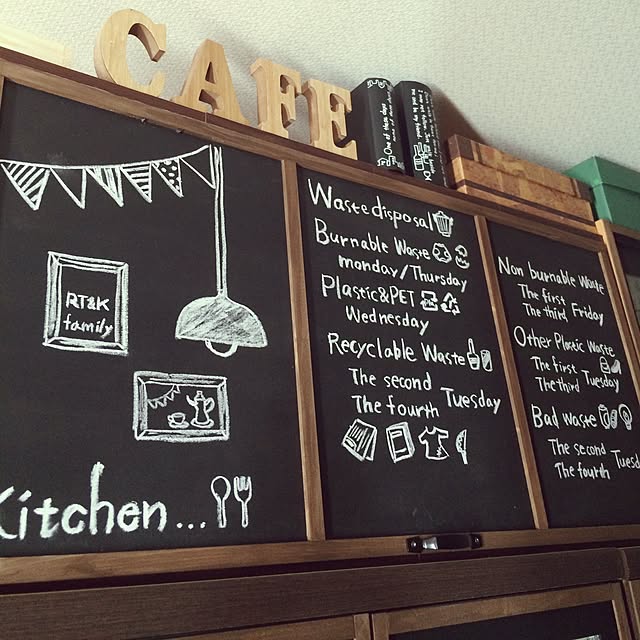 CAFE
One of these days
RT&K
family
Kitchen...
Waste disposal
Burnable Waste
monday/Thursday
Plastic&PET
Wednesday
Recyclable Waste
The second
The fourth
Tuesday
Non burnable Waste
The first
The third
Friday
Other Plastic Waste
The first
The third
Tuesday
Bad waste
The second
The fourth
Tuesd